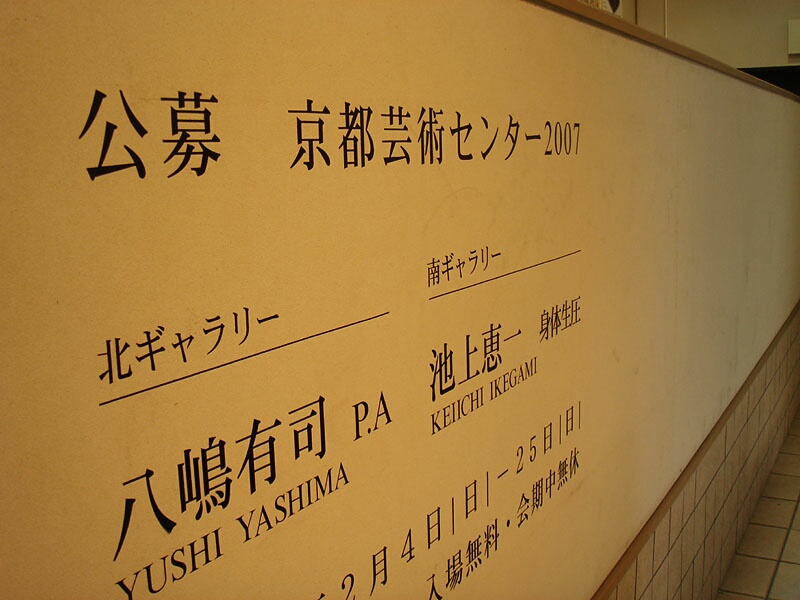 公募 京都芸術センター2007
北ギャラリー
八嶋有司 P.A
YUSHI YASHIMA
南ギャラリー
池上恵一 身体生圧
KEIICHI IKEGAMI
2月4日|日|−25日|日|
入場無料・会期中無休